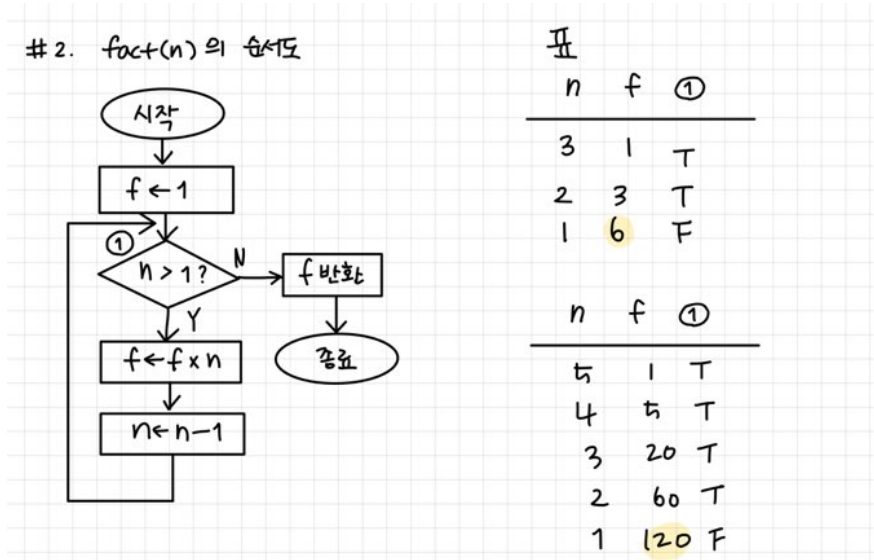 #2. fact(n)의 순서도
시작
f ← 1
①
n > 1?
N
f 반환
종료
Y
f ← f x n
n ← n-1
표
n f ①
3 1 T
2 3 T
1 6 F
n f ①
5 1 T
4 5 T
3 20 T
2 60 T
1 120 F